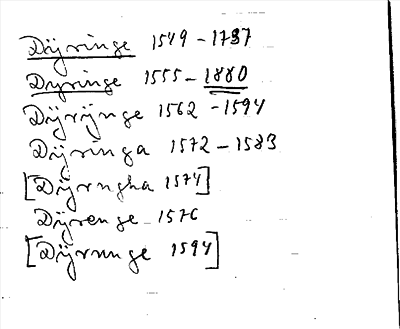 Dÿringe 1549-1737
Dyringe 1555-1880
Dÿrÿnge 1562-1594
Dÿringa 1572-1583
[Dÿrngha 1574]
Dÿrenge 1576
[Dÿrunge 1594]